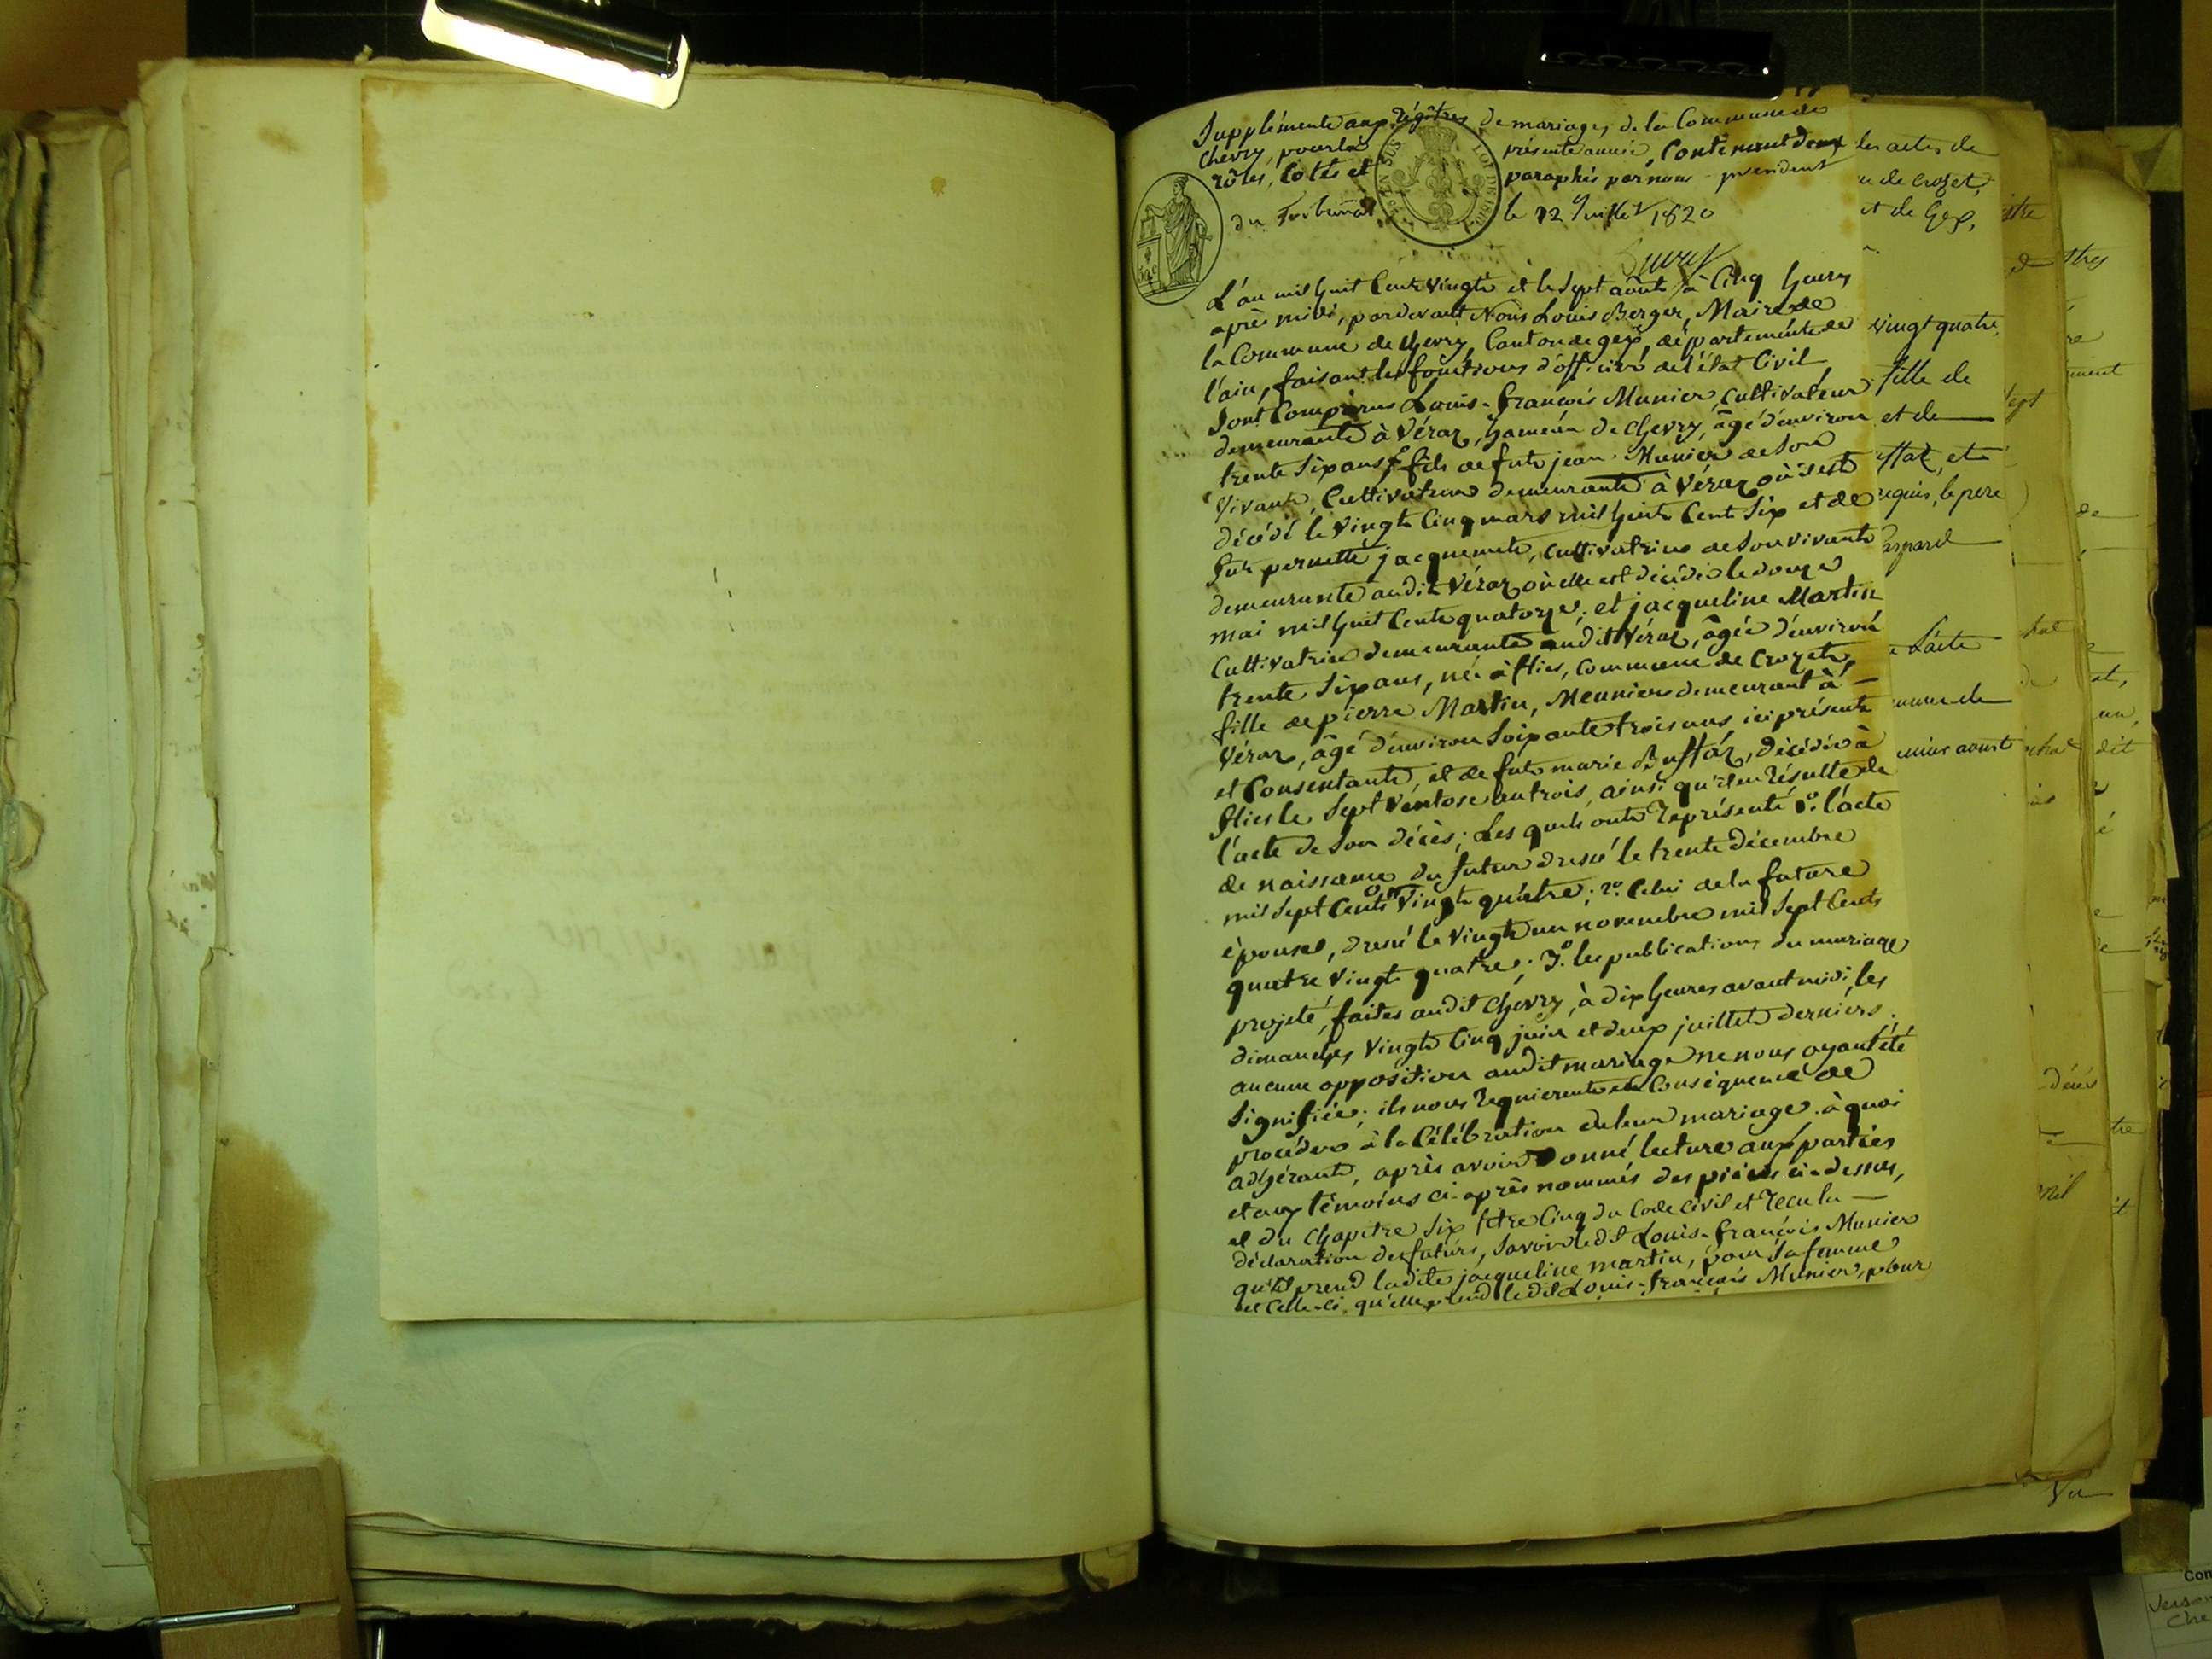 Supplément aux régîtres de mariages, de la Commune de
Chevry, pour la présente année, Contenant deux
rôles, Cotés et paraphés par nous président
du Tribunal le 12 Juillet 1820
EN SUS LOI DE
L'an mil huit Cent Vingt et le sept août à Cinq heures
après midi, pardevant Nous Louis Berger, Maire de
la Commune de Chevry, Canton de gex, département de
l'ain, faisant les fonctions d'officier de l'état Civil
Sont Comparus Louis-françois Munier, Cultivateur
demeurant à Véraz, hameau de Chevry, âgé d'environ
trente Six ans, fils de fut jean Munier de Son
Vivant, Cultivateur demeurant à Véraz où il est
décédé le Vingt Cinq mars mil huit Cent Six et de
fut pernette jacquemet, Cultivatrice de Son vivant
demeurante audit Véraz où elle est décédée le douze
mai mil huit Cent quatorze; et jacqueline Martin
Cultivatrice demeurante audit Véraz, âgée d'environ
trente Six ans, née à flies, Commune de Crozet,
fille de pierre Martin, Meunier demeurant à
Véraz, âgé d'environ Soixante trois ans ici présent
et Consentant, et de fut marie décédée à
flies le Sept Ventose an trois, ainsi qu'il en résulte de
l'acte de Son décès; Les quels ont représenté 1º. l'acte
de naissance du futur dressé le trente décembre
mil Sept Cents Vingt quatre; 2º. Celui de la future
épouse, dressé le Vingt un novembre mil Sept Cents
quatre Vingt quatre; 3º. les publications du mariage
projeté, faites audit Chevry, à dix heures avant midi, les
dimanches Vingt Cinq juin et deux juillet derniers.
aucune opposition audit mariage ne nous ayant été
Signifiée; ils nous requierent en Conséquence de
procéder à la Célébration de leur mariage. à quoi
adhérant, après avoir Donné lecture aux parties
et aux témoins ci-après nommés des pièces ci-dessus,
et du Chapitre Six titre Cinq du Code Civil et reçu la
déclaration des futurs, Savoir ledit Louis-françois Munier
qu'il prend ladite jacqueline martin, pour Sa femme
et Celle-ci, qu'elle prend ledit Louis-françois Munier, pour
les actes de
de Crozet,
et de Gex,
vingt quatre
fille de
et de
le pere
L'acte
décès
Vu